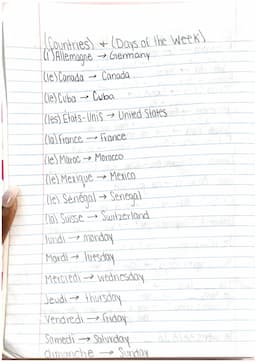 (Countries) + (Days of the Week)
(l')Allemagne → Germany
(le) Canada → Canada
(le) Cuba → Cuba
(les) États-Unis → United States
(la) France → France
(le) Maroc → Morocco
(le) Mexique → Mexico
(le) Sénégal → Senegal
(la) Suisse → Switzerland
lundi → monday
Mardi → Tuesday
Mercredi → wednesday
Jeudi → thursday
Vendredi → Friday
Samedi → Saturday
dimanche → Sunday